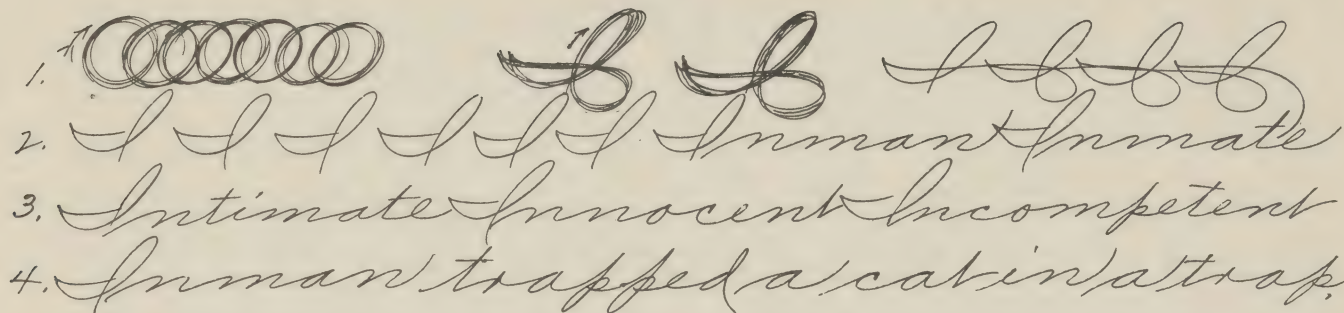 1.
2. I I I I I I Inman Inmate
3. Intimate Innocent Incompetent
4. Inman trapped a cat in a trap.